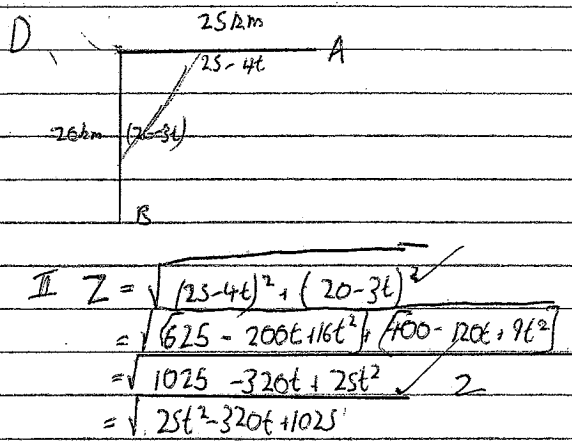 25km
D
A
25-4t
20km (20-3t)
B
II Z = √(25-4t)² + (20-3t)² ✓
= √(625 - 200t+16t²)+(400-120t+9t²)
= √1025 -320t + 25t² ✓ 2
= √25t²-320t+1025